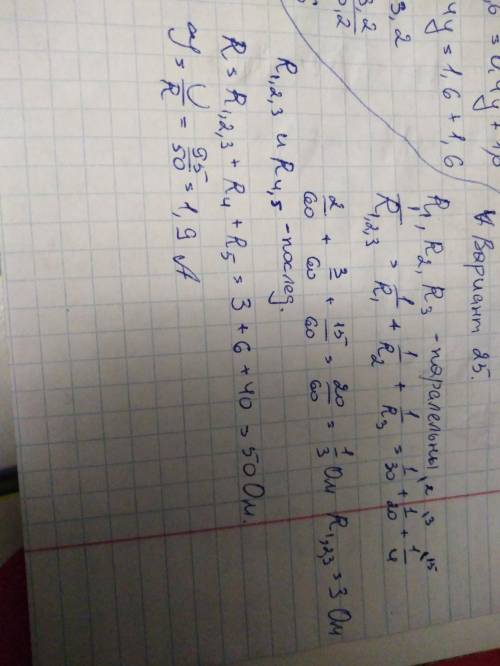 ,6 = 0,4y + 1,6
4y = 1,6 + 1,6
3,2
3,2
0,2
Вариант 25.
R₁, R₂, R₃ - паралельны
1/R₁,₂,₃ = 1/R₁ + 1/R₂ + 1/R₃ = 1/30 + 1/20 + 1/4
2 3 15
2/60 + 3/60 + 15/60 = 20/60 = 1/3 Ом R₁,₂,₃ = 3 Ом
R₁,₂,₃ и R₄,₅ - послед.
R = R₁,₂,₃ + R₄ + R₅ = 3 + 6 + 40 = 50 Ом.
У = U/R = 95/50 = 1,9 А